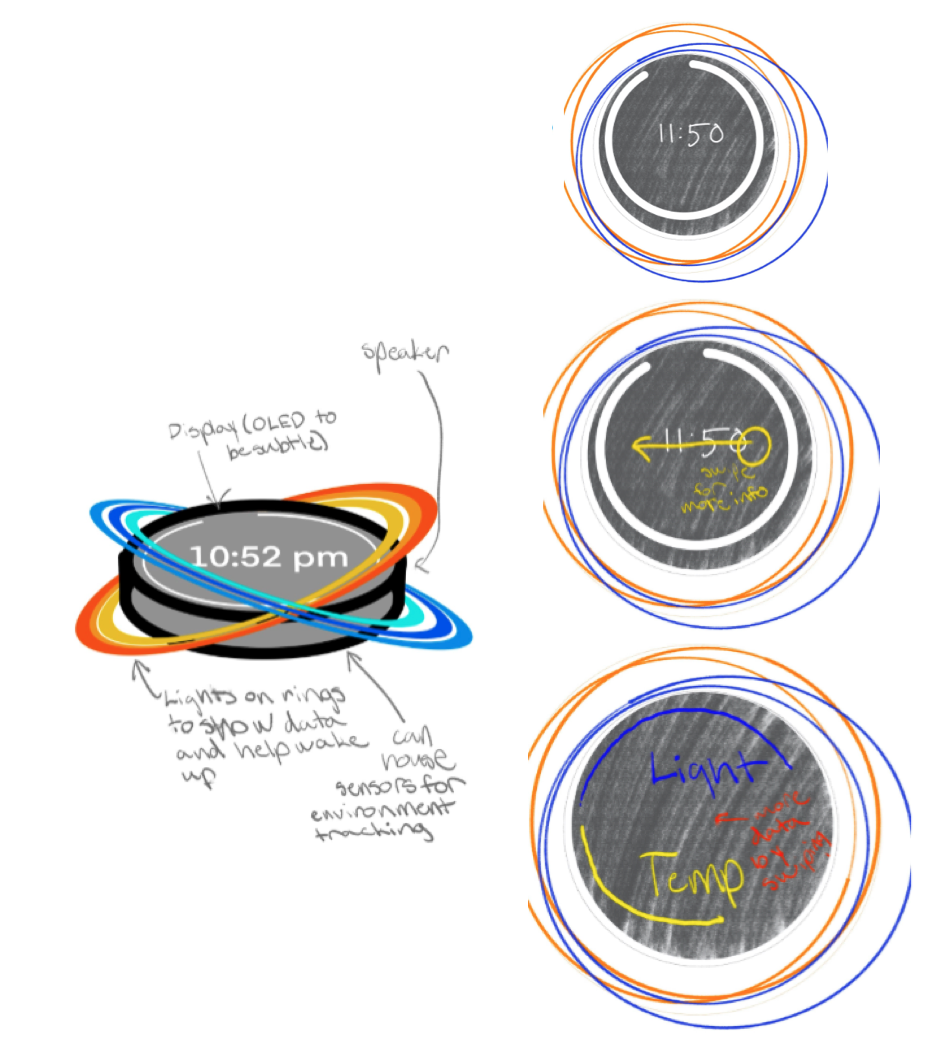 speaker
Display (OLED to
be subtle)
10:52 pm
Lights on rings
to show data
and help wake
up
can
house
sensors for
environment
tracking
11:50
11:50
swipe
for
more info
Light
more
data
by
swiping
Temp